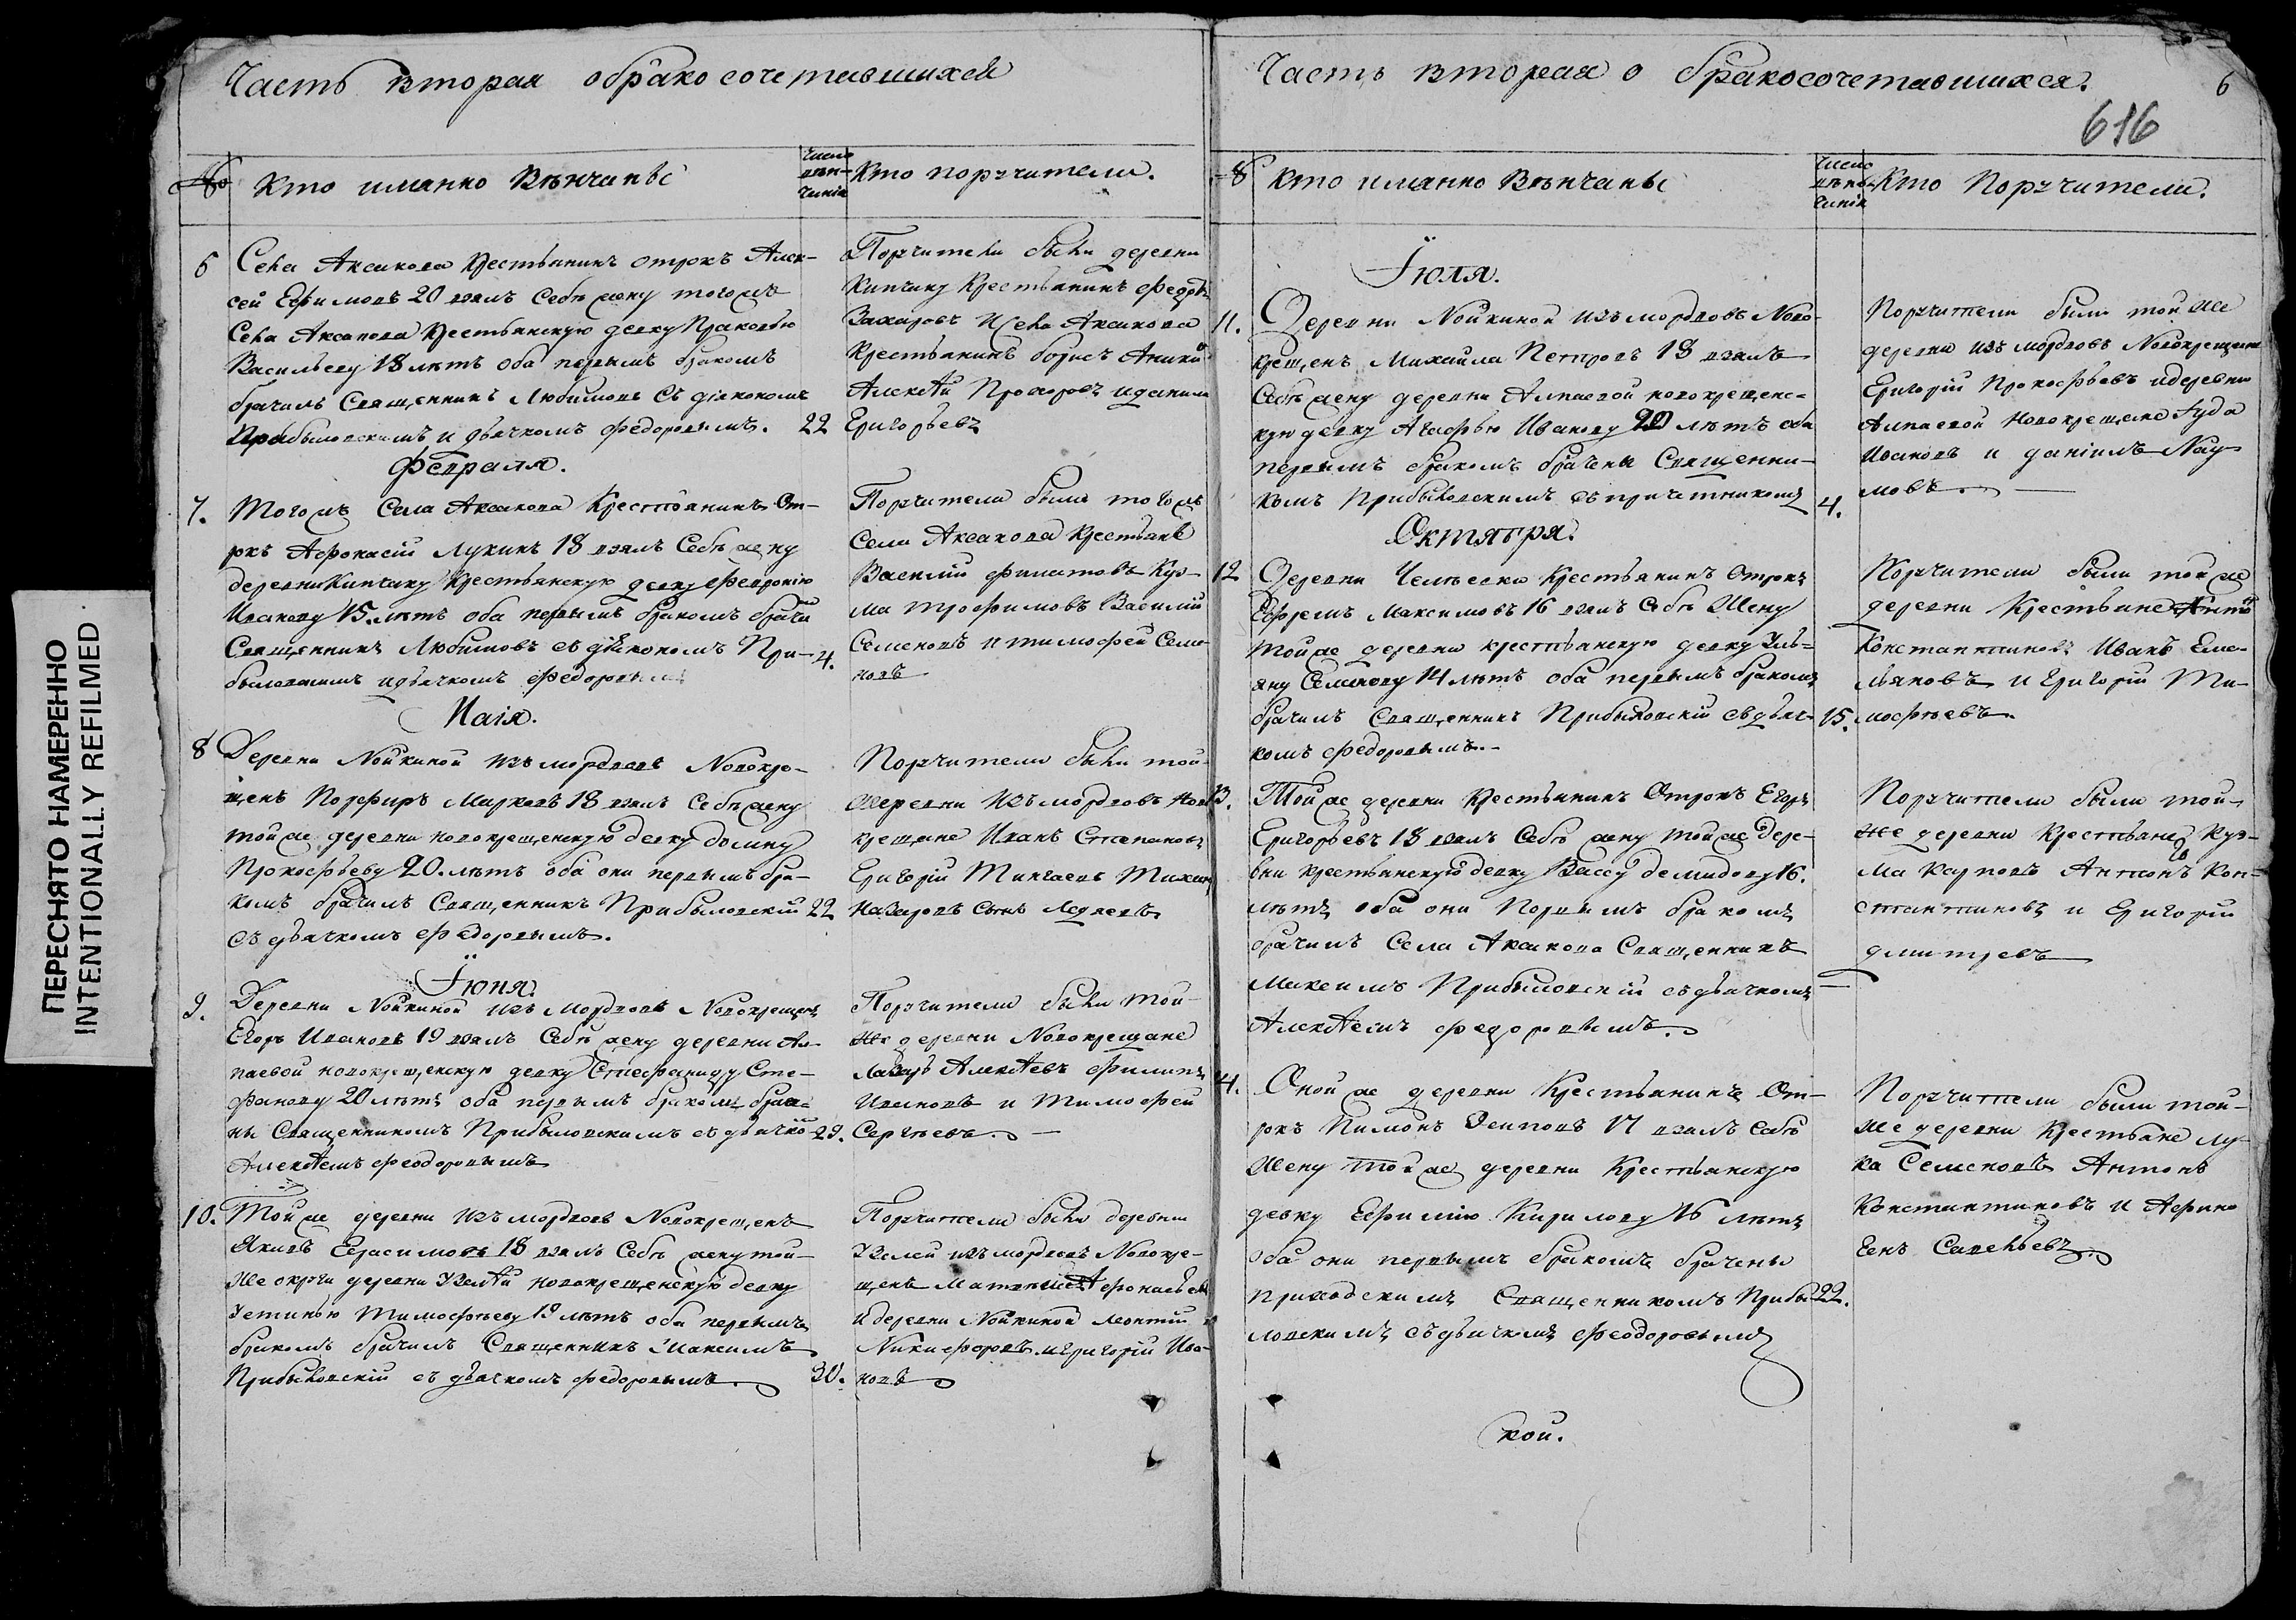 Часть вторая о бракосочетавшихся
№
Кто имянно венчаны
Число вѣн-
чанія
Кто поручители.
6
Села Аксакова крестьянинъ отрокъ Алек-
сей Ефимовъ 20 взялъ себѣ жену тогожъ
Села Аксакова крестьянскую девку Прасковью
Васильеву 18 лѣтъ оба первымъ бракомъ
брачилъ Священникъ Любимовъ съ діякономъ
Прибыловскимъ и дьячкомъ Федоровымъ.
22
Поручители были деревни
Кипчаку крестьянинъ Федоръ
Захаровъ и Села Аксакова
крестьянинъ борисъ
Алексѣй Прохоровъ и данила
Григорьевъ
Февраля.
7.
Тогожъ Села Аксакова Крестьянинъ От-
рокъ Афонасій Лукинъ 18 взялъ Себѣ жену
деревни Кипчаку крестьянскую девку Февронію
Иванову 15 лѣтъ оба первымъ бракомъ брачи
Священникъ Любимовъ съ діякономъ При-
быловскимъ и дьячкомъ Федоровымъ
4.
Поручители были тогожъ
Села Аксакова Крестьяне
Василий Филатовъ Кузь-
ма Трофимовъ Василий
Семеновъ и тимофей Семе-
новъ
Маія.
8
Деревни Нойкиной изъ мордвовъ Новокре-
щенъ Порфиръ Марковъ 18 взялъ себѣ жену
тойже деревни новокрещенскую девку домну
Прокофьеву 20. лѣтъ оба они первымъ бра-
комъ брачилъ Священникъ Прибыловский
съ дьячкомъ Федоровымъ.
22
Поручители были той-
же деревни Изъ мордвовъ Ново
крещане Иванъ Степановъ
Григорій
Назаровъ Сынъ
Іюня.
9.
Деревни Нойкиной изъ Мордвовъ Новокрещенъ
Егоръ Ивановъ 19 взялъ Себѣ жену деревни Ал-
паевой новокрещенскую девку Стефаниду Сте-
фанову 20 лѣтъ оба первымъ бракомъ браче-
ны Священникомъ Прибыловскимъ съ дьячко
Алексѣемъ Феодоровымъ
29.
Поручители были той-
же деревни Новокрещане
Лазарь Алексѣевъ Филипъ
Ивановъ и Тимофей
Сергѣевъ.
10.
Тойже деревни изъ мордвовъ Новокрещенъ
Яковъ Герасимовъ 18 взялъ Себѣ жену той-
же округи деревни Узелѣй новокрещенскую девку
Устинью Тимофѣеву 19 лѣтъ оба первымъ
бракомъ брачилъ Священникъ Максимъ
Прибыловскій съ дьячкомъ Федоровымъ
30.
Поручители были деревни
Узелей изъ мордвовъ Новокре-
щенъ Афонасьевъ
и деревни Нойкиной Леонтий
Никифоровъ и Григорій Ива-
новъ
Часть вторая о бракосочетавшихся.
6
616
№
Кто имянно Вѣнчаны
Число
вѣн-
чанія
Кто Поручители.
Іюля.
11.
Деревни Нойкиной изъ мордвовъ Ново-
крещенъ Михайла Петровъ 18 взялъ
Себѣ жену деревни Алпаевой новокрещенс-
кую девку Агафью Иванову 20 лѣтъ оба
первымъ бракомъ брачены Священни-
комъ Прибыловскимъ съ причетникомъ
4.
Поручители были тойже
деревни изъ мордвовъ Новокрещены
Григорій Прокофьевъ и деревни
Алпаевой Новокрещене Іуда
Ивановъ и даніилъ Нау-
мовъ
Октября.
12
Деревни Крестьянинъ Отрокъ
Ефремъ Максимовъ 16 взялъ Себѣ Жену
Тойже деревни крестьянскую девку Уль-
яну Семенову 14 лѣтъ оба первымъ бракомъ
брачилъ Священникъ Прибыловскій съ дьяч-
комъ Федоровымъ.
15.
Поручители были тойже
деревни Крестьяне
Константиновъ Иванъ Еме-
льяновъ и Григорій Ти-
мофѣевъ.
13.
Тойже деревни Крестьянинъ Отрокъ Егоръ
Григорьевъ 18 взялъ Себѣ жену Тойже дере-
вни крестьянскую девку Вассу демидову 16.
лѣтъ оба они Первымъ бракомъ
брачилъ Села Аксакова Священникъ
Максимъ Прибыловскій съ дьячкомъ
Алексѣемъ Федоровымъ.
Поручители были той-
же деревни Крестьяне Куз-
ма Карповъ Антонъ Кон-
стантиновъ и Григорій
дмитревъ
14.
Оной же деревни Крестьянинъ От-
рокъ Пимонъ Осиповъ 17 взялъ Себѣ
Жену Тойже деревни Крестьянскую
девку Ефимію Кирилову 16 лѣтъ
Оба они первымъ бракомъ брачены
приходскимъ Священникомъ Прибы
ловскимъ съ дьячкомъ Феодоровымъ
22.
Поручители были той-
же деревни Крестьяне Лу-
ка Семеновъ Антонъ
Константиновъ и
Савельевъ
кой.
ПЕРЕСНЯТО НАМЕРЕННО
INTENTIONALLY REFILMED